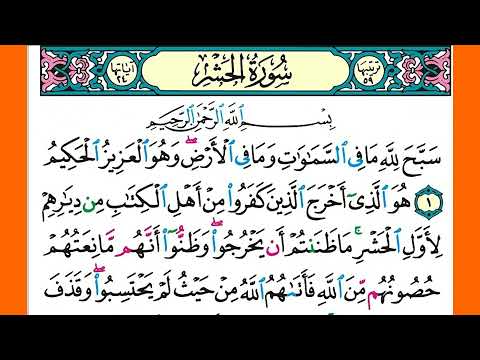 ترتيبها ٥٩ سُورَةُ الحَشْرِ آياتها ٢٤
بِسْمِ ٱللَّهِ ٱلرَّحْمَٰنِ ٱلرَّحِيمِ
سَبَّحَ لِلَّهِ مَا فِى ٱلسَّمَٰوَٰتِ وَمَا فِى ٱلْأَرْضِۖ وَهُوَ ٱلْعَزِيزُ ٱلْحَكِيمُ
١ هُوَ ٱلَّذِىٓ أَخْرَجَ ٱلَّذِينَ كَفَرُوا۟ مِنْ أَهْلِ ٱلْكِتَٰبِ مِن دِيَٰرِهِمْ
لِأَوَّلِ ٱلْحَشْرِۚ مَا ظَنَنتُمْ أَن يَخْرُجُوا۟ۖ وَظَنُّوٓا۟ أَنَّهُم مَّانِعَتُهُمْ
حُصُونُهُم مِّنَ ٱللَّهِ فَأَتَىٰهُمُ ٱللَّهُ مِنْ حَيْثُ لَمْ يَحْتَسِبُوا۟ۖ وَقَذَفَ